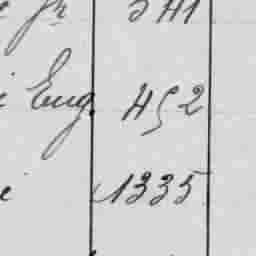 jr 341
Eug. 452
1335